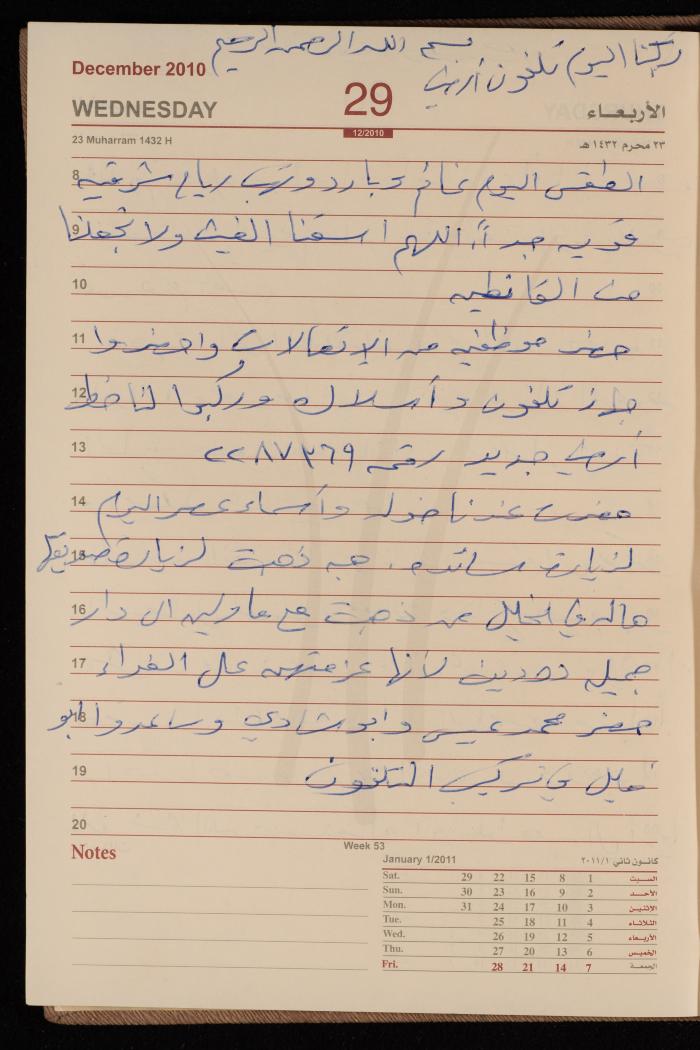 بسم الله الرحمن الرحيم
ركبنا اليوم تلفون أرضي
December 2010
WEDNESDAY
29
12/2010
الأربعـاء
23 Muharram 1432 H
٢٣ محرم ١٤٣٢ هـ
8 الطقس اليوم غائم وبارد وتهب رياح شرقيه
9 قويه جداً، اللهم اسقنا الغيث ولا تجعلنا
10 من القانطين
11 حضر موظفين من الاتصالات واحضروا
12 جهاز تلفون وأسلاك وركبوا لنا خط
13 أرضي جديد رقم ٢٢٨٧٣٦٩
14 حضرت عندنا خوله وأسماء عصر اليوم
15 لزيارة سائده، هبه ذهبت لزيارة صديقتها
16 هاله في الخليل ذهبت مع ال دار
17 جميل لأنها عزمتهم على الغداء
18 حضر محمد عيسى وابو شادي وساعدوا ابو
19 في تركيب التلفون
20
Notes
Week 53
January 1/2011
كانـون ثاني ٢٠١١/١
Sat. 29 22 15 8 1 السـبت
Sun. 30 23 16 9 2 الأحـد
Mon. 31 24 17 10 3 الاثنين
Tue. 25 18 11 4 الثلاثاء
Wed. 26 19 12 5 الأربعاء
Thu. 27 20 13 6 الخميس
Fri. 28 21 14 7 الجمعة